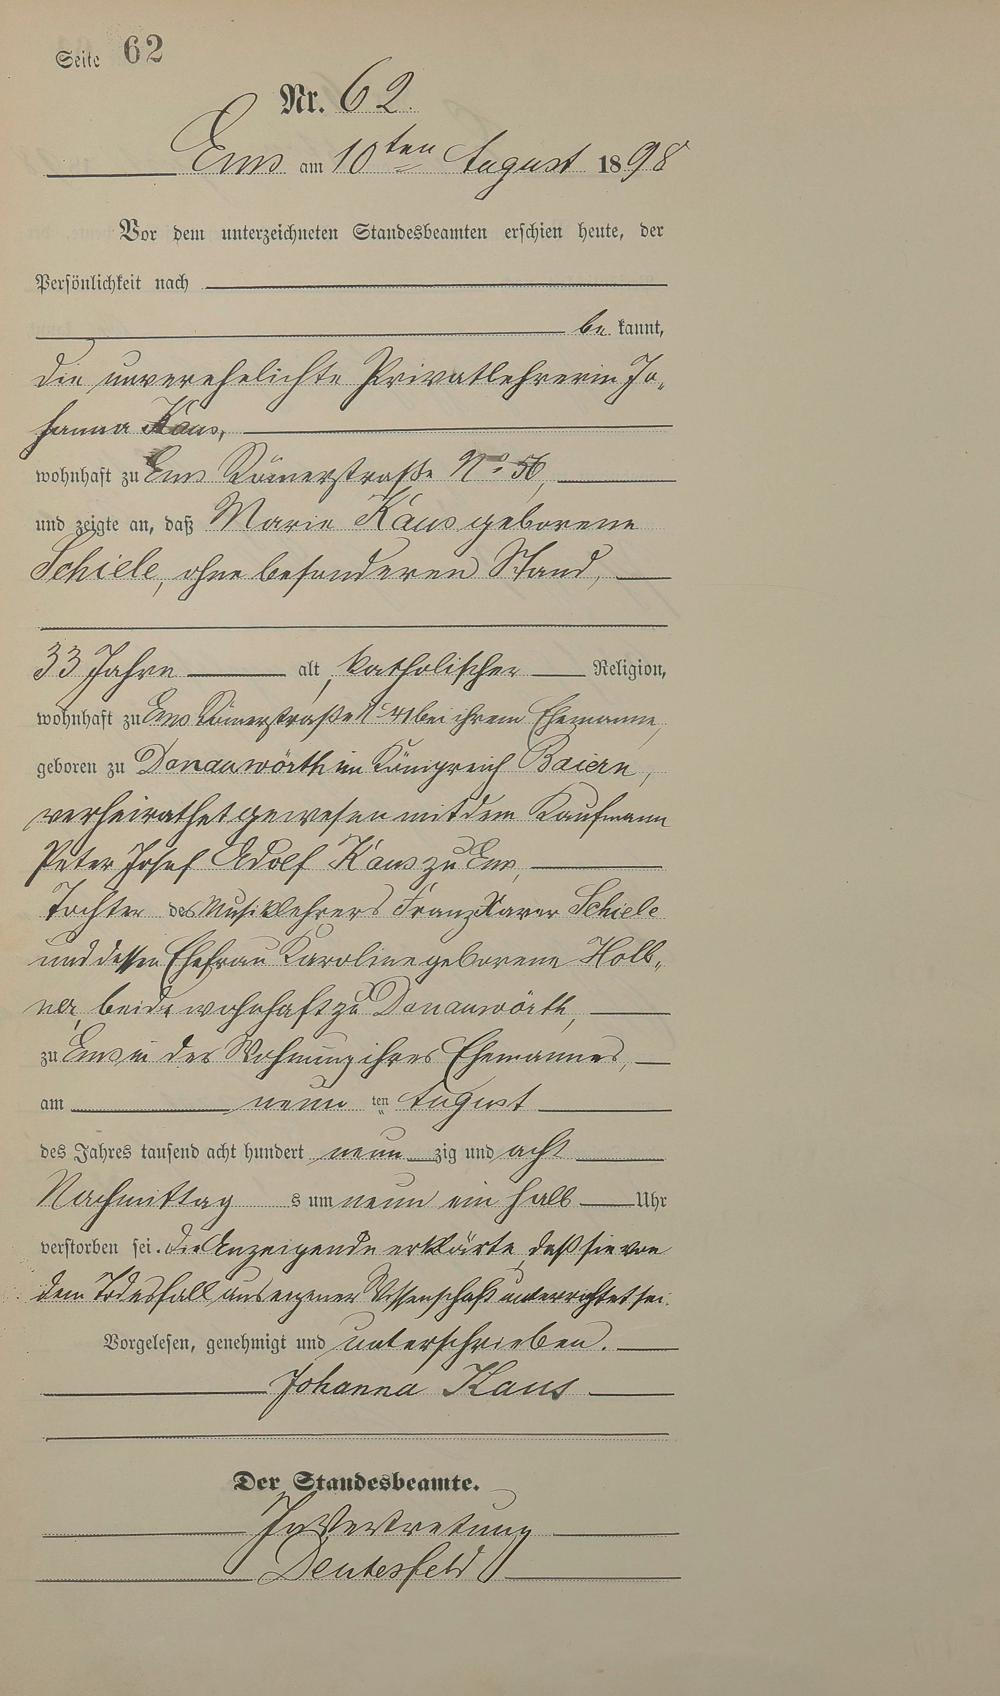 Seite 62
Nr. 62.
Ems am 10ten August 1898
Vor dem unterzeichneten Standesbeamten erschien heute, der
Persönlichkeit nach
be kannt,
die unverehelichte Privatlehrerin Jo-
hanna Kaus,
wohnhaft zu Ems Römerstraße No 56,
und zeigte an, daß Marie Kaus geborene
Schiele, ohne besonderen Stand,
33 Jahre alt, katholischer Religion,
wohnhaft zu Ems Römerstraße 41 bei ihrem Ehemanne,
geboren zu Donauwörth im Königreich Baiern,
verheirathet gewesen mit dem Kaufmann
Peter Josef Adolf Kaus zu Ems,
Tochter des Musiklehrers Franz Xaver Schiele
und dessen Ehefrau Karoline geborene Holb-
ner, beide wohnhaft zu Donauwörth,
zu Ems in der Wohnung ihres Ehemannes,
am neun ten August
des Jahres tausend acht hundert neun zig und acht
Nachmittag s um neun ein halb Uhr
verstorben sei. Die Anzeigende erklärte, daß sie von
dem Todesfall aus eigener Wissenschaft unterrichtet sei.
Vorgelesen, genehmigt und unterschrieben.
Johanna Kaus
Der Standesbeamte.
In Vertretung